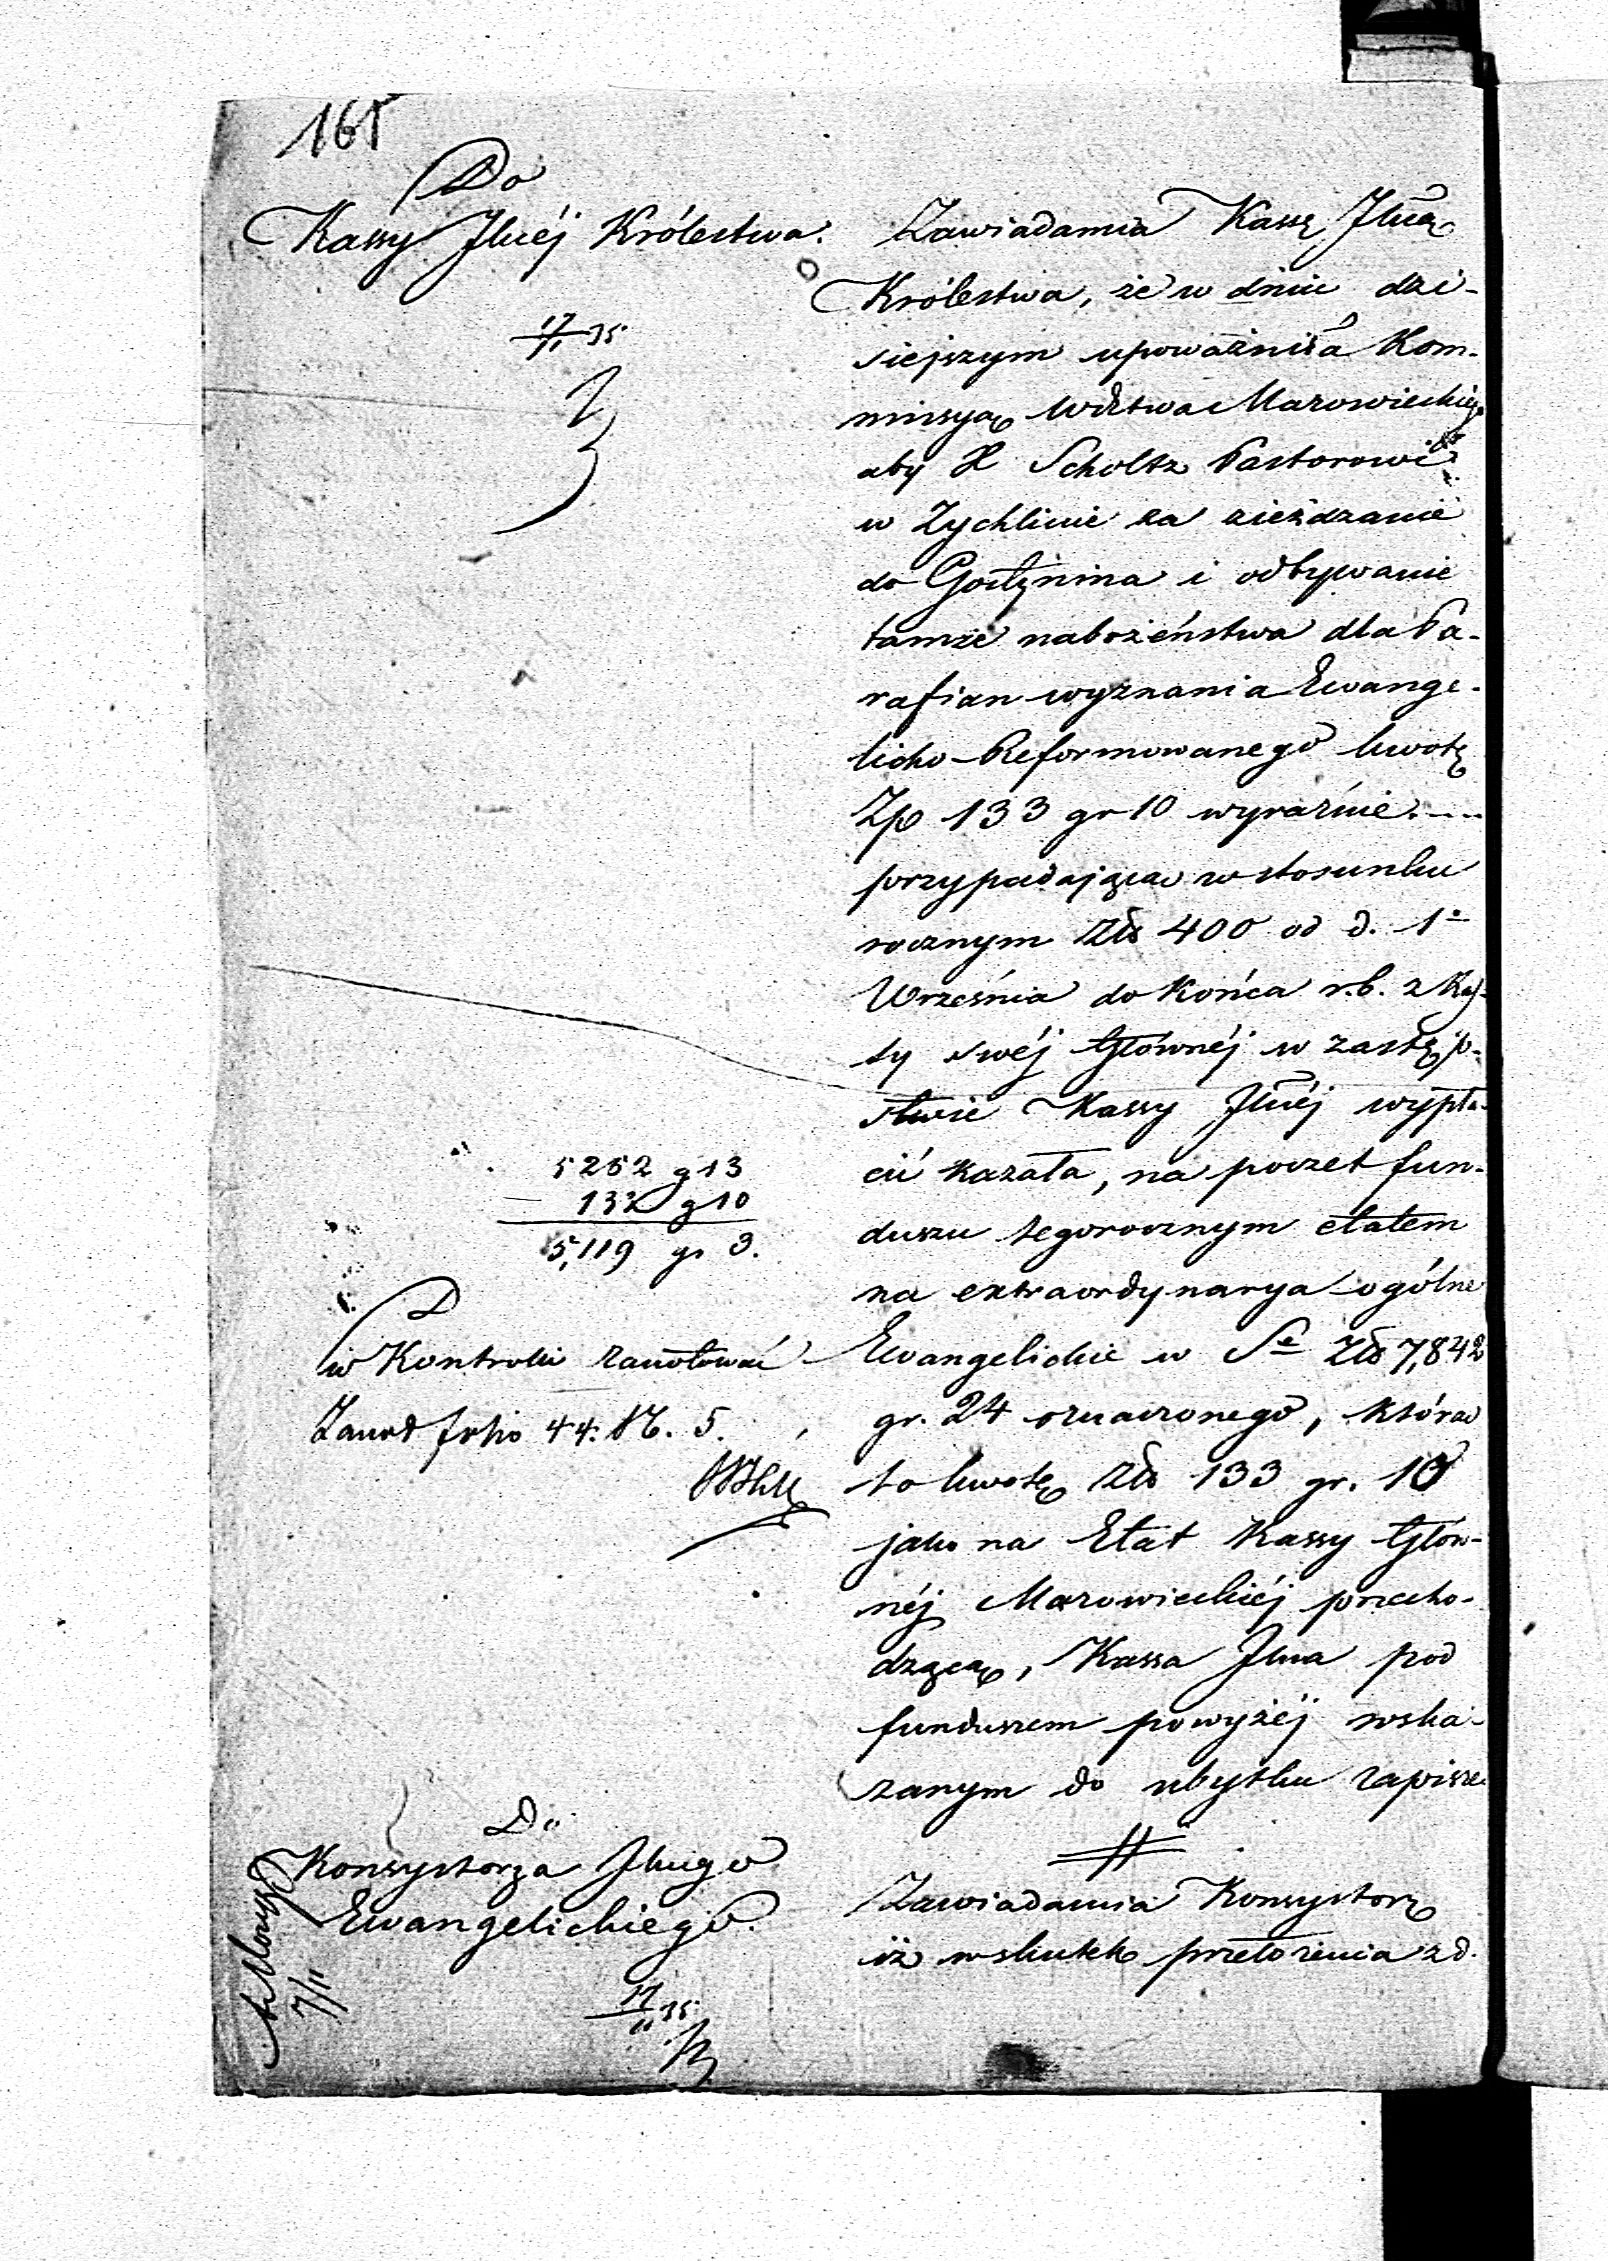 161
Do
Kassy Jlnéj Królestwa.
17/11 35
Zawiadamia Kassę Jlną
Królestwa, że w dniu dzi-
siejszym upoważniła Kom-
missyą Wdztwa Mazowieckiego
aby X Scholtz Pastorowi
w Zychlinie za zieżdzanie
do Gostynina i odbywanie
tamże nabożeństwa dla Pa-
rafian wyznania Ewange-
licko-Reformowanego kwotę
Zp 133 gr 10 wyraźnie....
przypadającą w stosunku
rocznym Złp 400 od d. 1o
Września do końca r.b. z Kas-
sy swéj Głównéj w zastęp-
stwie Kassy Jlnéj wypła-
cić kazała, na poczet fun-
duszu tegorocznym etatem
na extraordynarya ogólne
Ewangelickie w Se Złp 7,842
gr. 24 oznaczonego, która
to kwotę Złp 133 gr. 10
jako na Etat Kassy Głów-
néj Mazowieckiéj przecho-
dzącą, Kassa Jlna pod
funduszem powyżéj wska-
zanym do ubytku zapisze.
5252 g 13
133 g 10
5,119 gr 3.
w Kontroli zanotować
Zanot folio 44. N. 5.
Do
Konsystorza Jlnego
Ewangelickiego.
17/11 35
7/11
Zawiadamia Konsystorz
iż w skutek przełożenia z d.